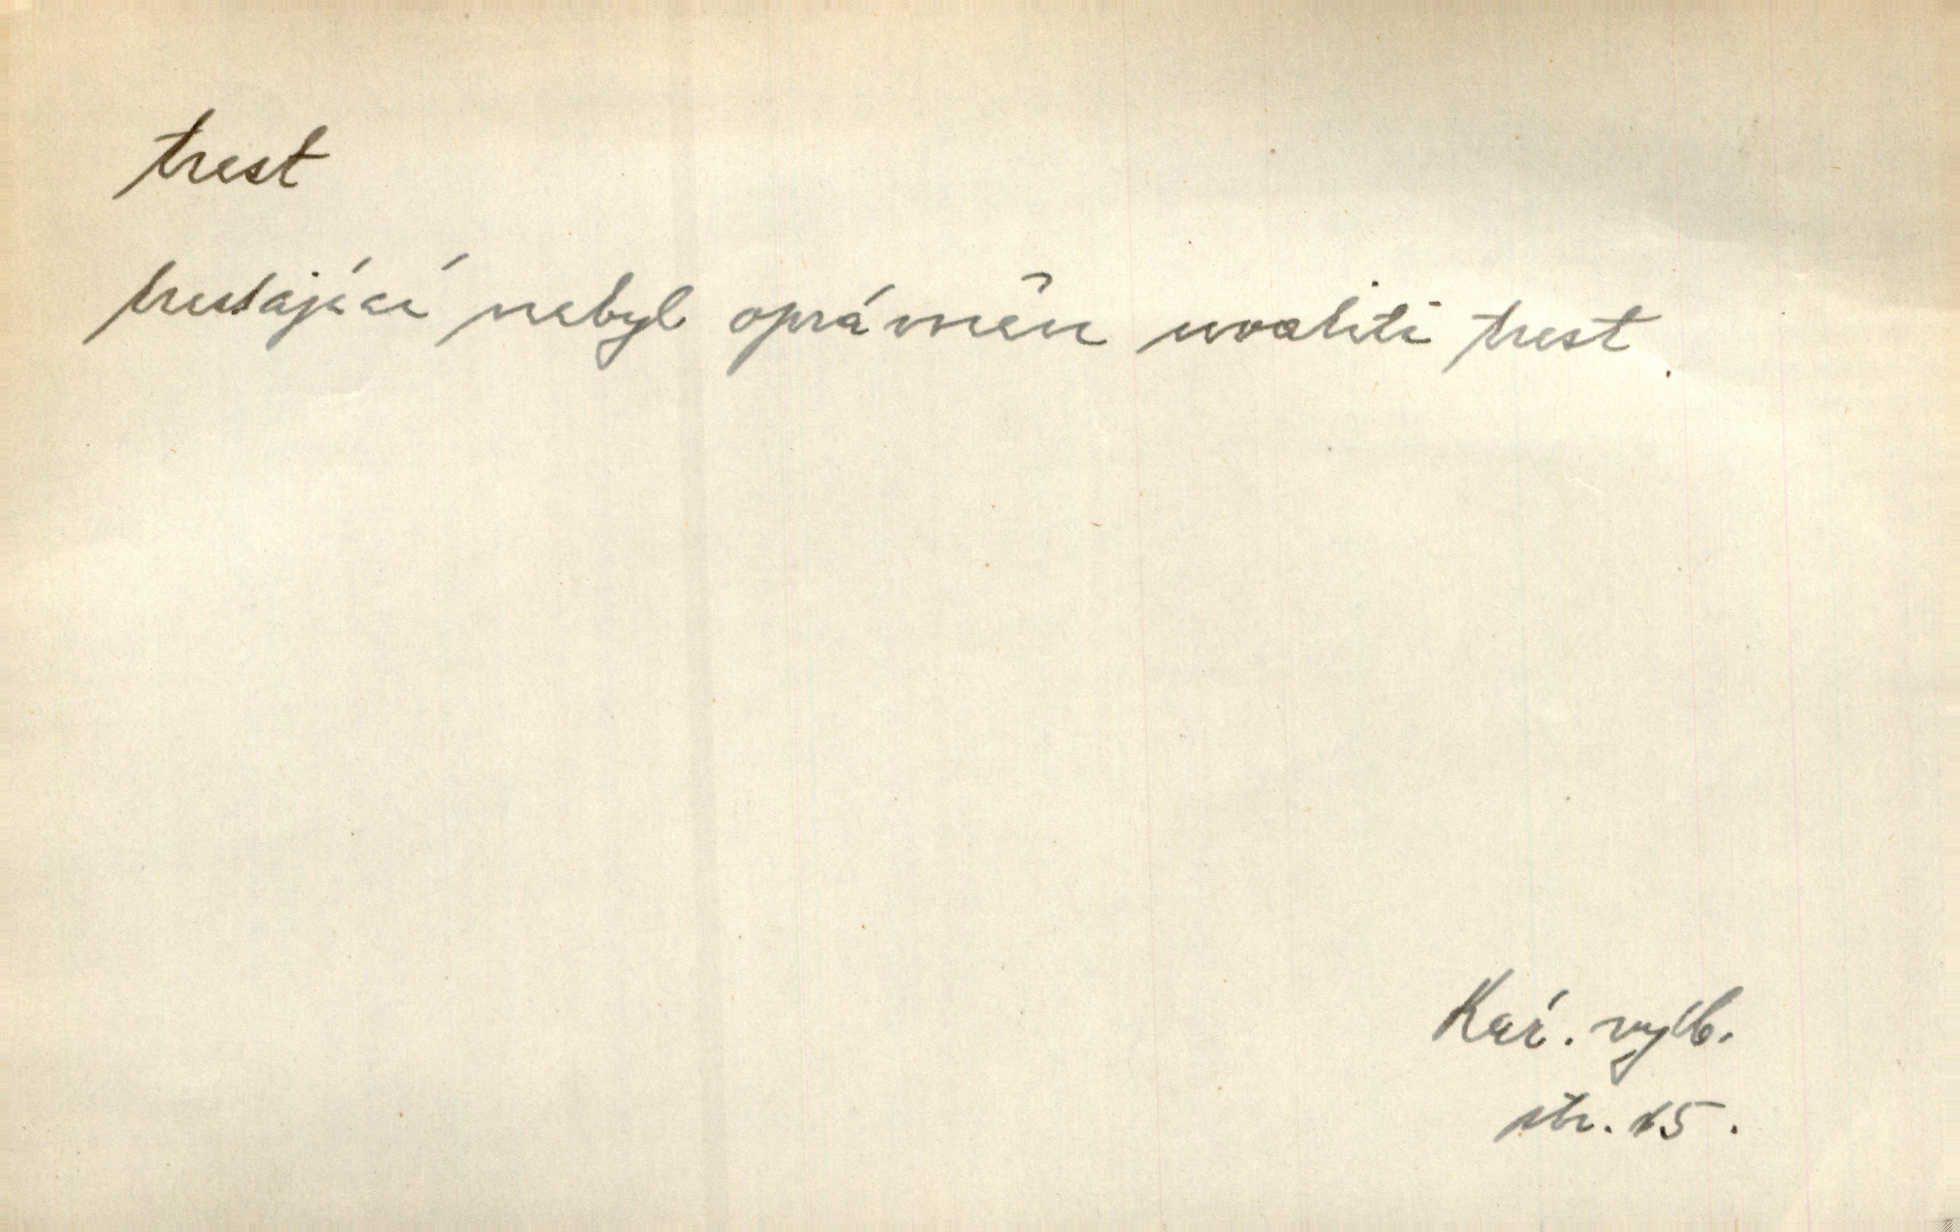 trest
trestající nebyl oprávněn uvaliti trest.
Kář. výb.
str. 15.